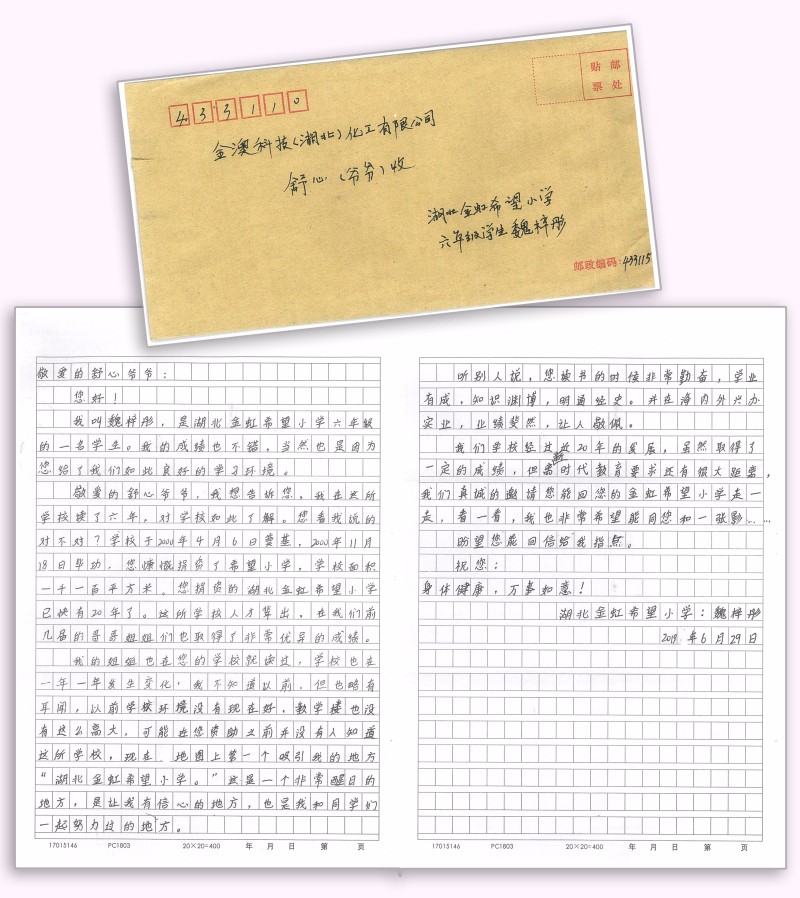 433110
贴 邮
票 处
金澳科技(湖北)化工有限公司
舒心(爷爷)收
湖北金虹希望小学
六年级学生魏梓彤
邮政编码:433115
敬爱的舒心爷爷:
您好!
我叫魏梓彤,是湖北金虹希望小学六年级
的一名学生。我的成绩也不错,当然也是因为
您给了我们如此良好的学习环境。
敬爱的舒心爷爷,我想告诉您,我在这所
学校读了六年,对学校如此了解。您看我说的
对不对?学校于2000年4月6日奠基,2000年11月
18日毕功,您慷慨捐资了希望小学,学校面积
一千一百平方米。您捐资的湖北金虹希望小学
已快有20年了。这所学校人才辈出,在我们前
几届的哥哥姐姐们也取得了非常优异的成绩。
我的姐姐也在您的学校就读过,学校也在
一年一年发生变化,我不知道以前,但也略有
耳闻,以前学校环境没有现在好,教学楼也没
有这么高大,可能在您资助之前并没有人知道
这所学校,现在 地图上第一个吸引我的地方
“湖北金虹希望小学。”这是一个非常醒目的
地方,是让我有信心的地方,也是我和同学们
一起努力过的地方。
17015146 PC1803 20×20=400 年 月 日 第 页
听别人说,您读书的时候非常勤奋,学业
有成,知识渊博,明通经史。并在海内外兴办
实业,业绩斐然,让人敬佩。
我们学校经过近20年的发展,虽然取得了
一定的成绩,但离时代教育要求还有很大距离,
我们真诚的邀请您能回您的金虹希望小学走一
走,看一看,我也非常希望能同您和一张影……
盼望您能回信给我指点。
祝您:
身体健康,万事如意!
湖北金虹希望小学:魏梓彤
2019年6月29日
17015146 PC1803 20×20=400 年 月 日 第 页